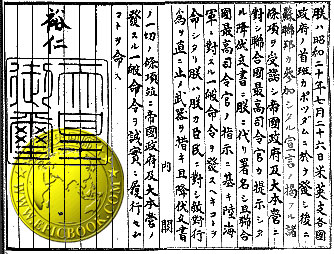 朕ハ昭和二十年七月二十六日米英支各國
政府ノ首班カポツダムニ於テ發シ後ニ
蘇聯邦カ參加シタル宣言ノ掲クル諸
條項ヲ受諾シ帝國政府及大本營ニ
對シ聯合國最高司令官カ提示シタ
ル降伏文書ニ朕ニ代リ署名シ且聯合
國最高司令官ノ指示ニ基キ陸海
軍ニ對スル一般命令ヲ發スヘキコトヲ
命シタリ朕ハ朕カ臣民ニ對シ敵對行
爲ヲ直ニ止メ武器ヲ措キ且降伏文書
内閣
ノ一切ノ條項竝ニ帝國政府及大本營ノ
發スル一般命令ヲ誠實ニ履行セム
コトヲ命ス
裕仁
天皇
御璽
WWW.EPICBOOK.COM